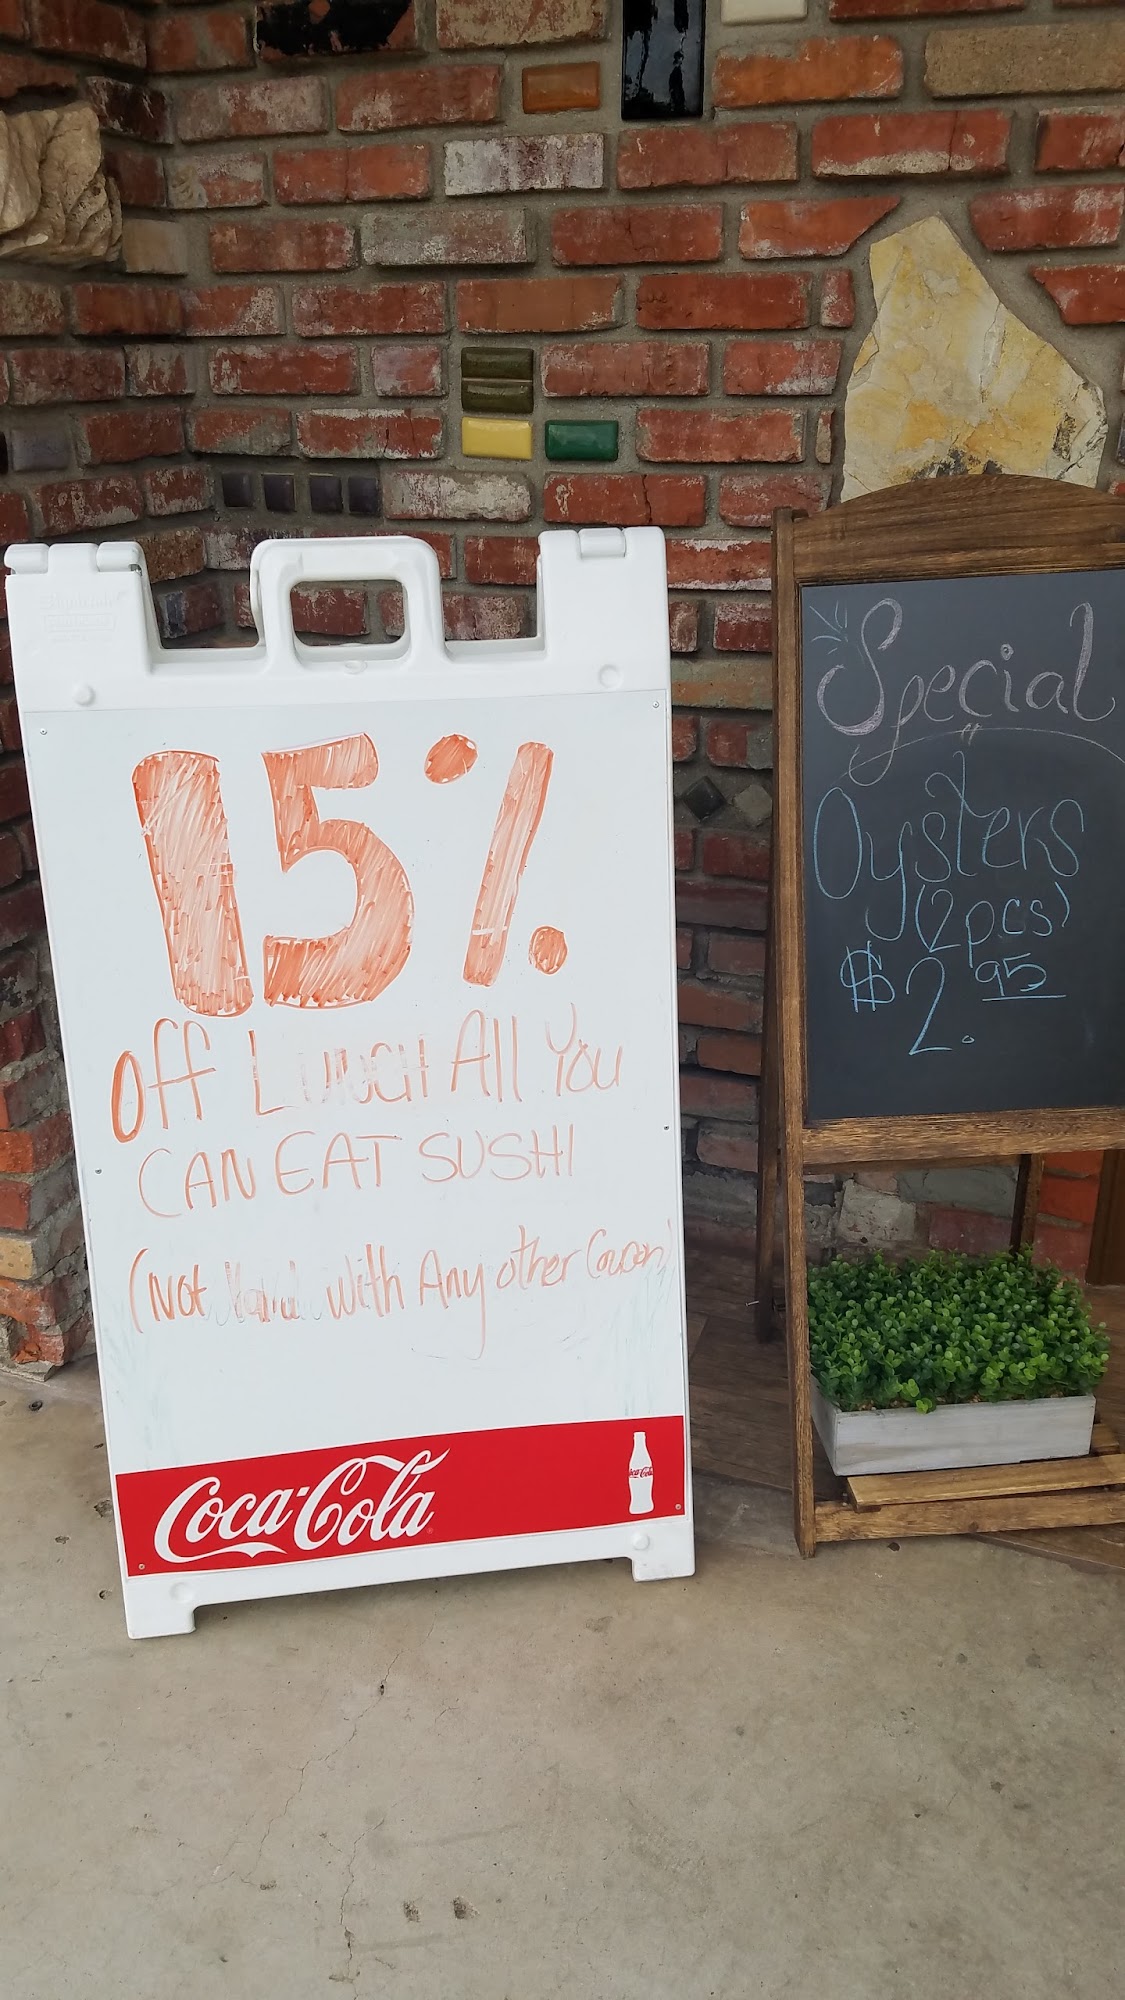 15%
Off Lunch All You
CAN EAT SUSHI
(Not Valid with Any other Coupon)
Coca-Cola
Coca-Cola
Special
Oysters
(2pcs)
$2.95